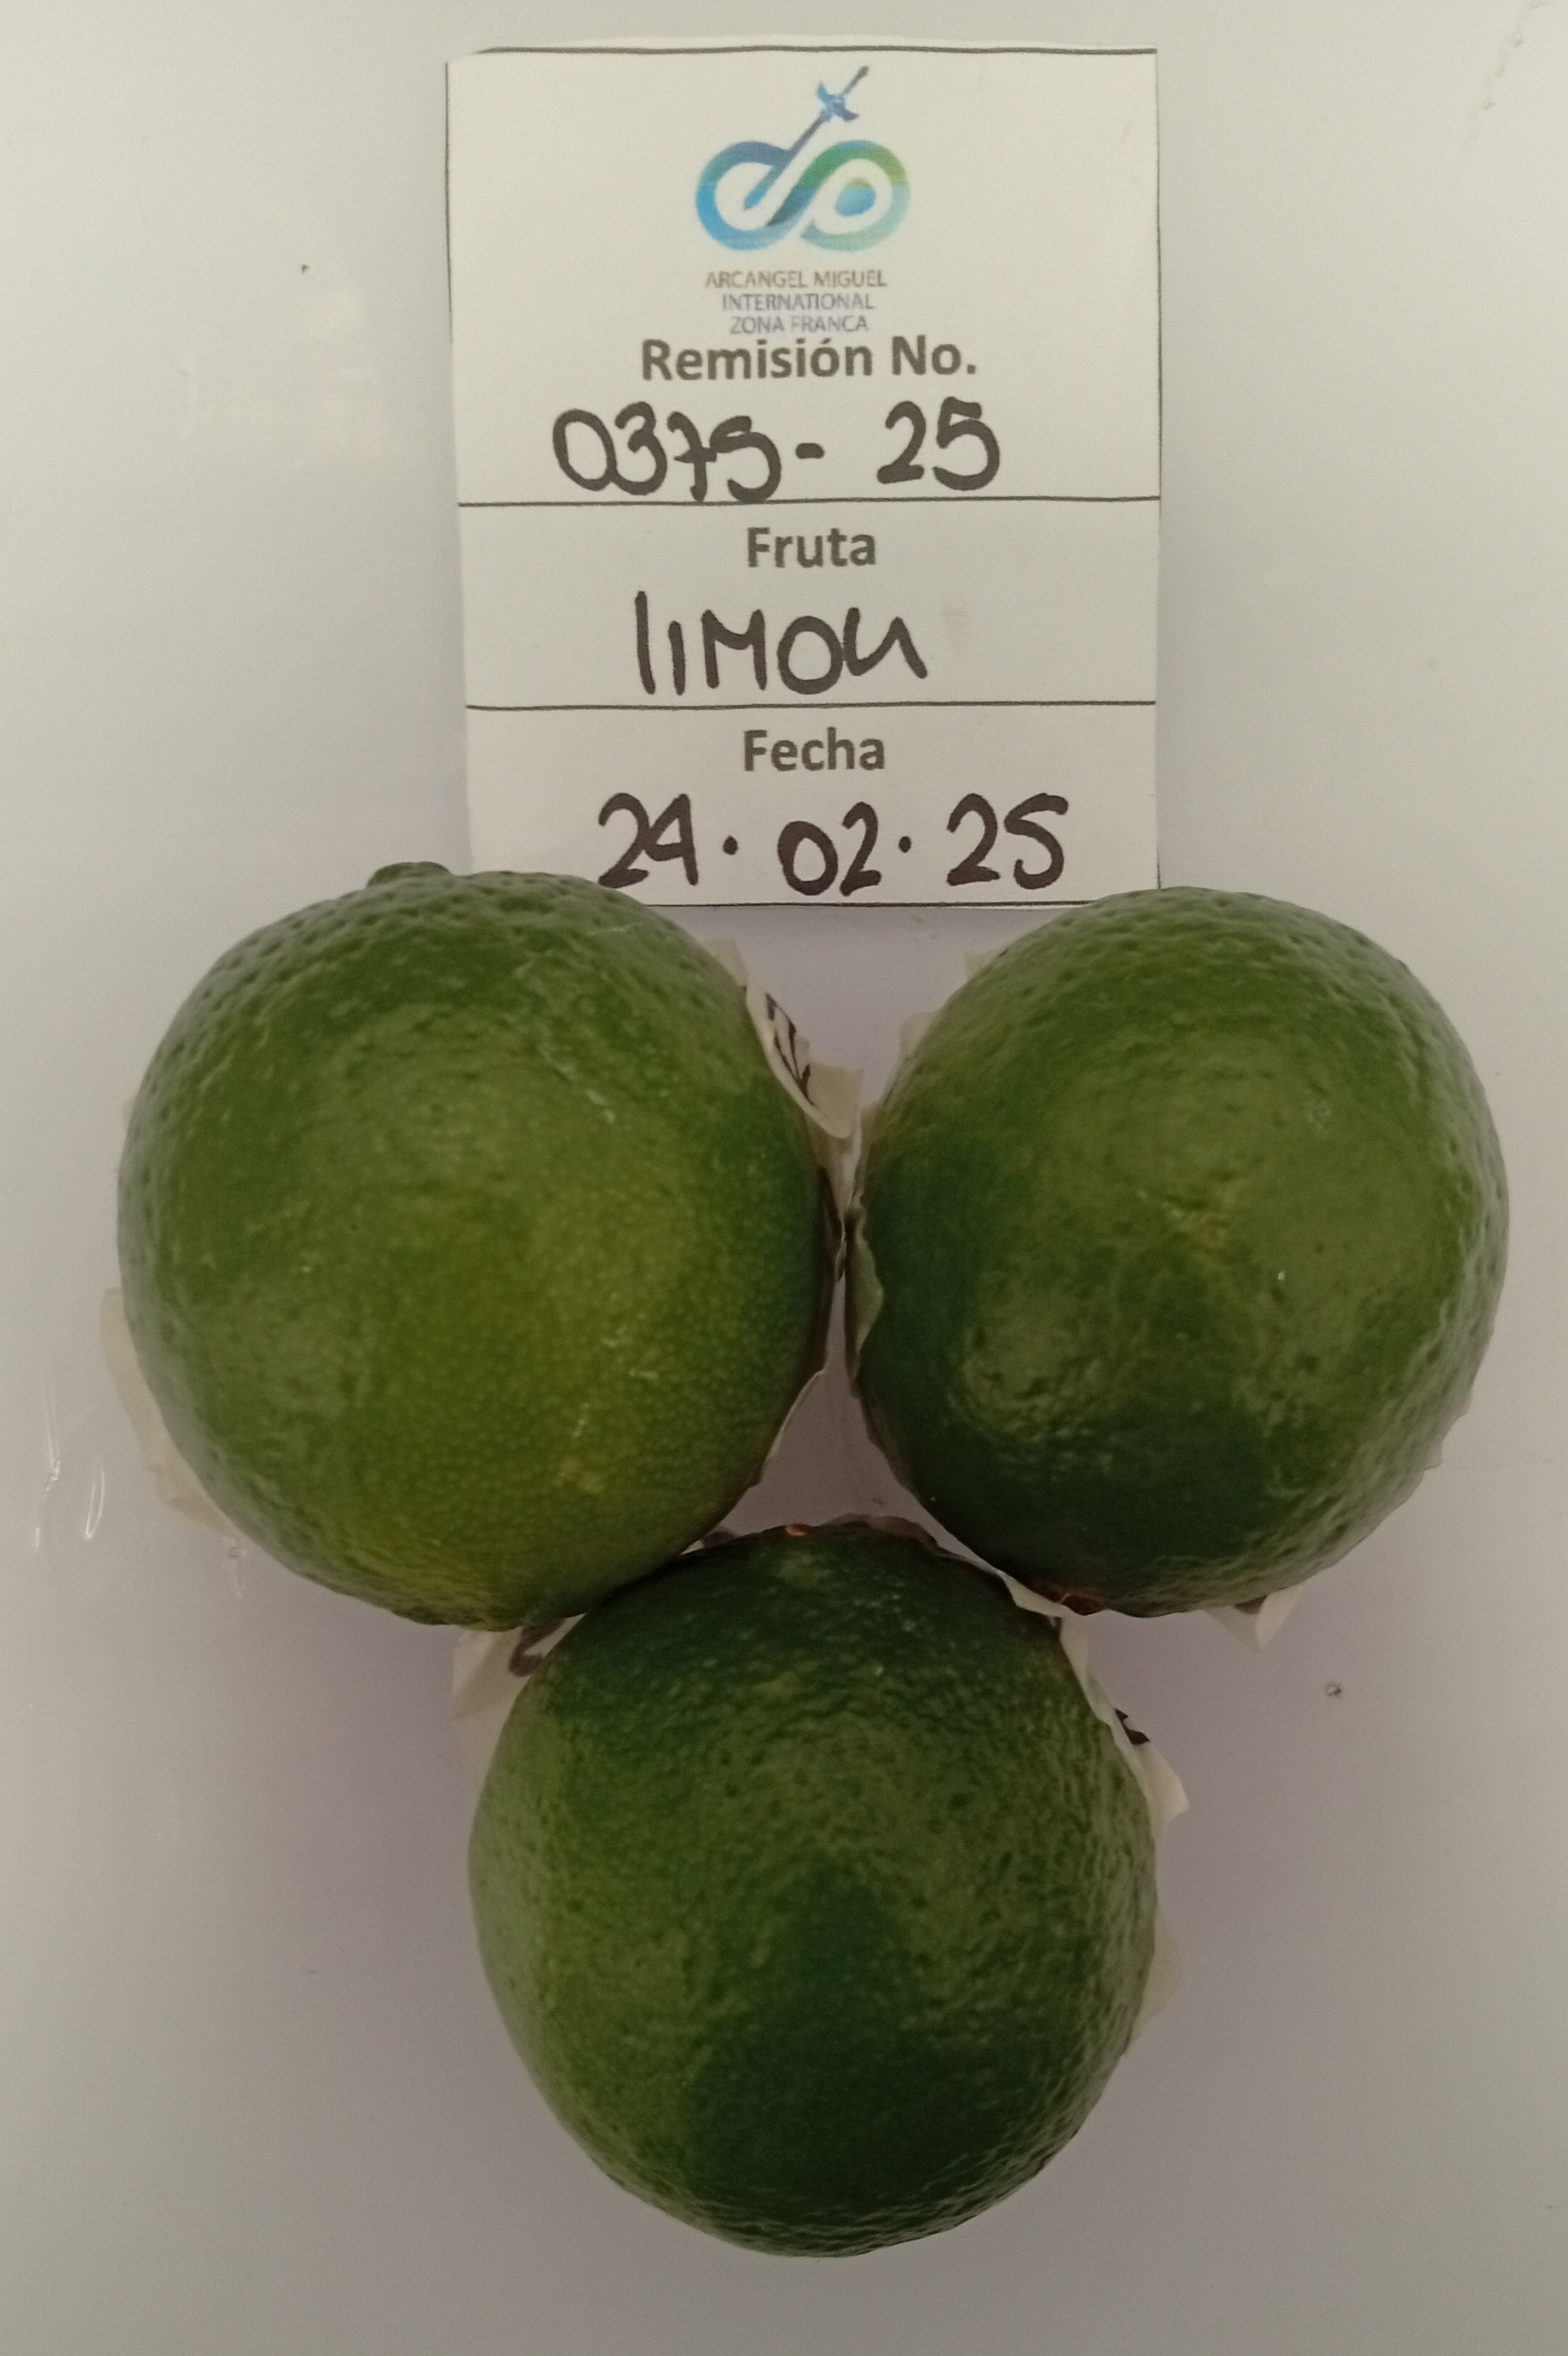 ARCANGEL MIGUEL
INTERNATIONAL
ZONA FRANCA
Remisión No.
0375- 25
Fruta
lIMON
Fecha
24.02.25